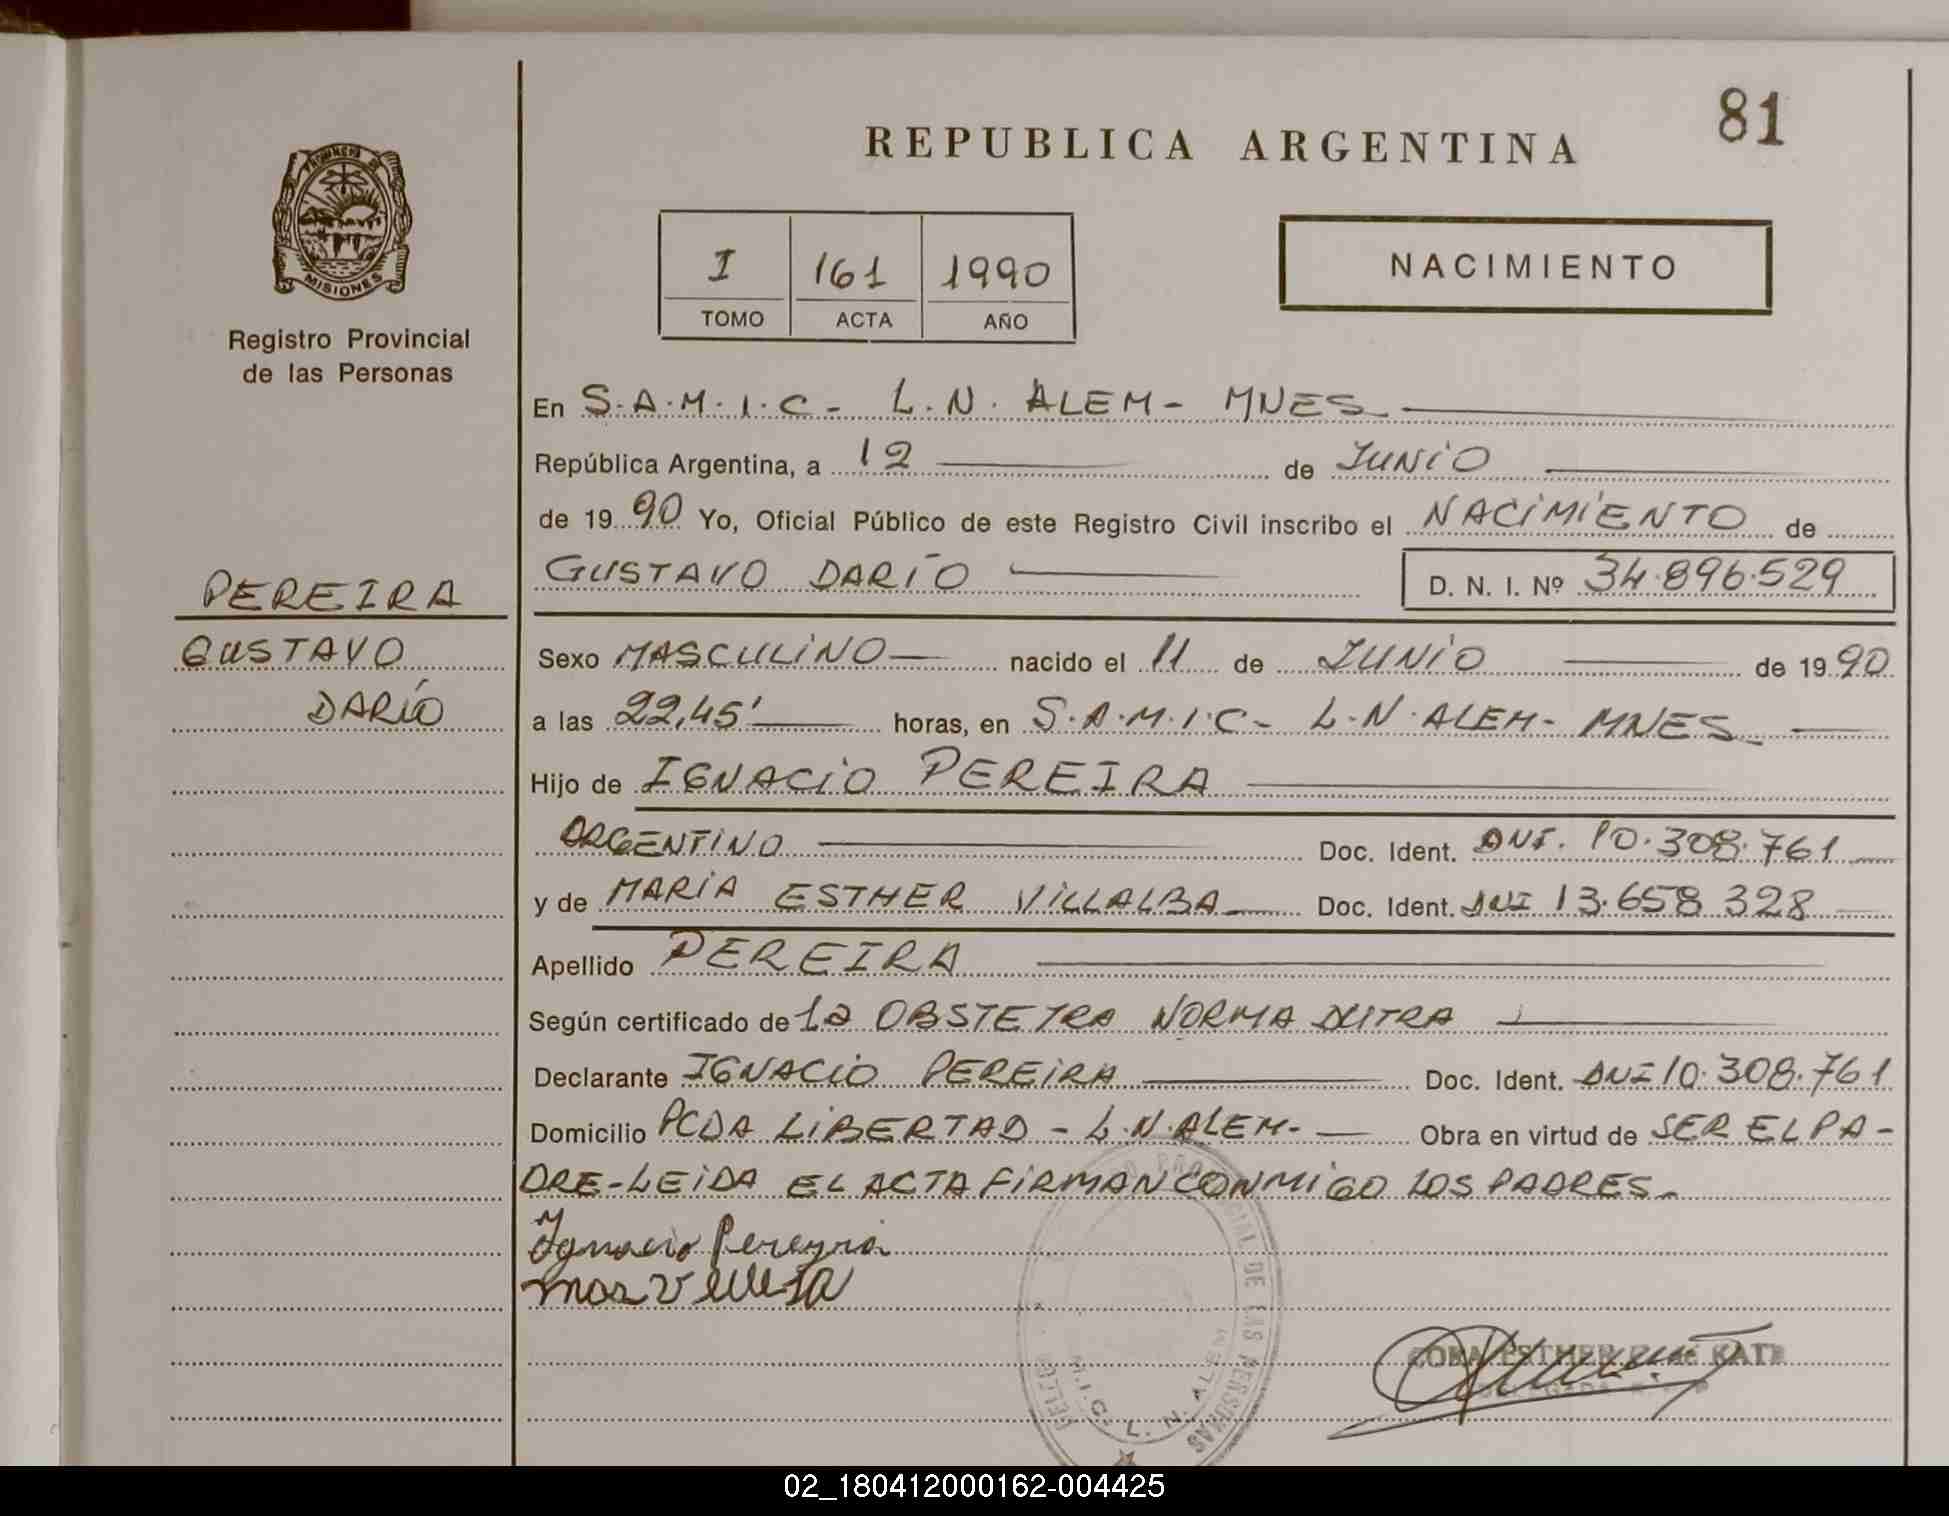 81
REPUBLICA ARGENTINA
PROVINCIA DE
MISIONES
Registro Provincial
de las Personas
I 161 1990
TOMO ACTA AÑO
NACIMIENTO
En S.A.M.I.C- L.N. ALEM- MNES
República Argentina, a 12 de JUNIO
de 1990 Yo, Oficial Público de este Registro Civil inscribo el NACIMIENTO de
GUSTAVO DARÍO D. N. I. Nº 34.896.529
PEREIRA
GUSTAVO
DARÍO
Sexo MASCULINO nacido el 11 de JUNIO de 1990
a las 22,45' horas, en S.A.M.I.C- L.N. ALEM- MNES
Hijo de IGNACIO PEREIRA
ARGENTINO Doc. Ident. DNI. 10.308.761
y de MARIA ESTHER VILLALBA Doc. Ident. DNI 13.658 328
Apellido PEREIRA
Según certificado de la OBSTETRA NORMA DUTRA
Declarante IGNACIO PEREIRA Doc. Ident. DNI 10.308.761
Domicilio PCDA LIBERTAD - L.N.ALEM- Obra en virtud de SER EL PA-
DRE-LEIDA EL ACTA FIRMAN CONMIGO LOS PADRES.
Ignacio Pereyra
DE LAS PERSONAS
L. N. ALEM
ESTHER
02_180412000162-004425